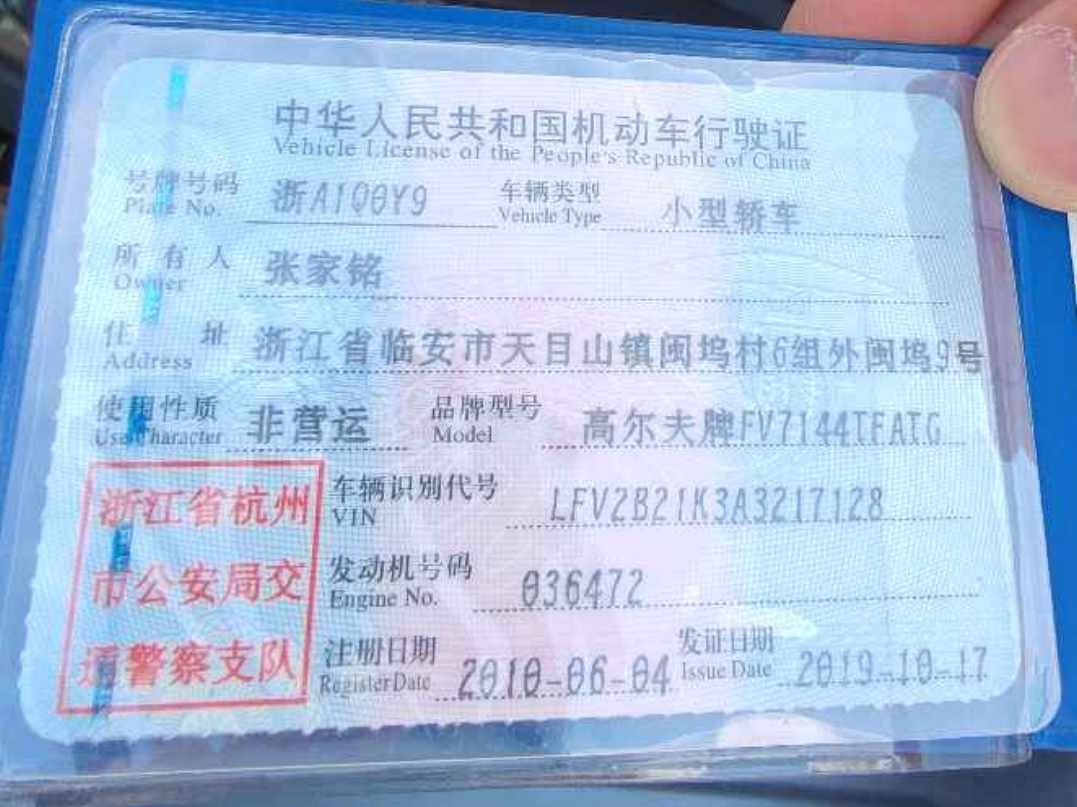 中华人民共和国机动车行驶证
Vehicle License of the People's Republic of China
号牌号码 浙A1Q0Y9 车辆类型 小型轿车
Plate No. Vehicle Type
所有人 张家铭
Owner
住址 浙江省临安市天目山镇闽坞村6组外闽坞9号
Address
使用性质 非营运 品牌型号 高尔夫牌FV7144TFATG
Use Character Model
浙江省杭州
市公安局交
通警察支队
车辆识别代号 LFV2B21K3A3217128
VIN
发动机号码 036472
Engine No.
注册日期 2010-06-04 发证日期 2019-10-17
Register Date Issue Date